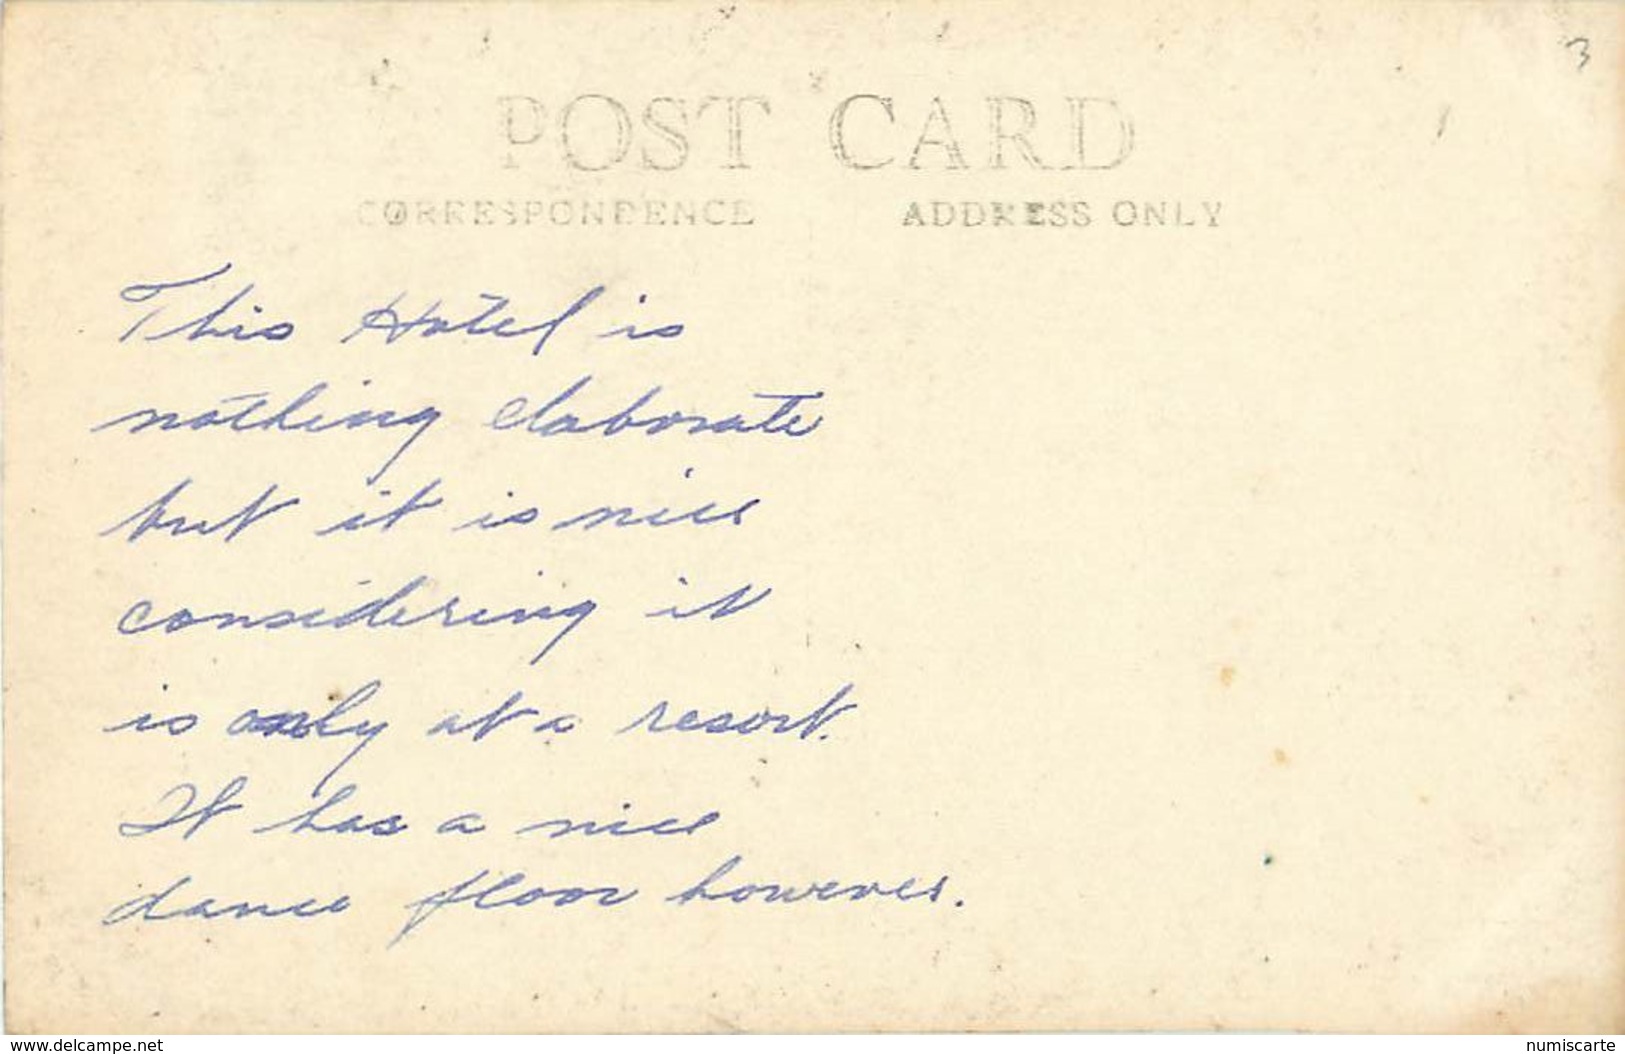 3
POST CARD
CORRESPONDENCE ADDRESS ONLY
This Hotel is
nothing elaborate
but it is nice
considering it
is only at a resort.
It has a nice
dance floor however.
www.delcampe.net numiscarte